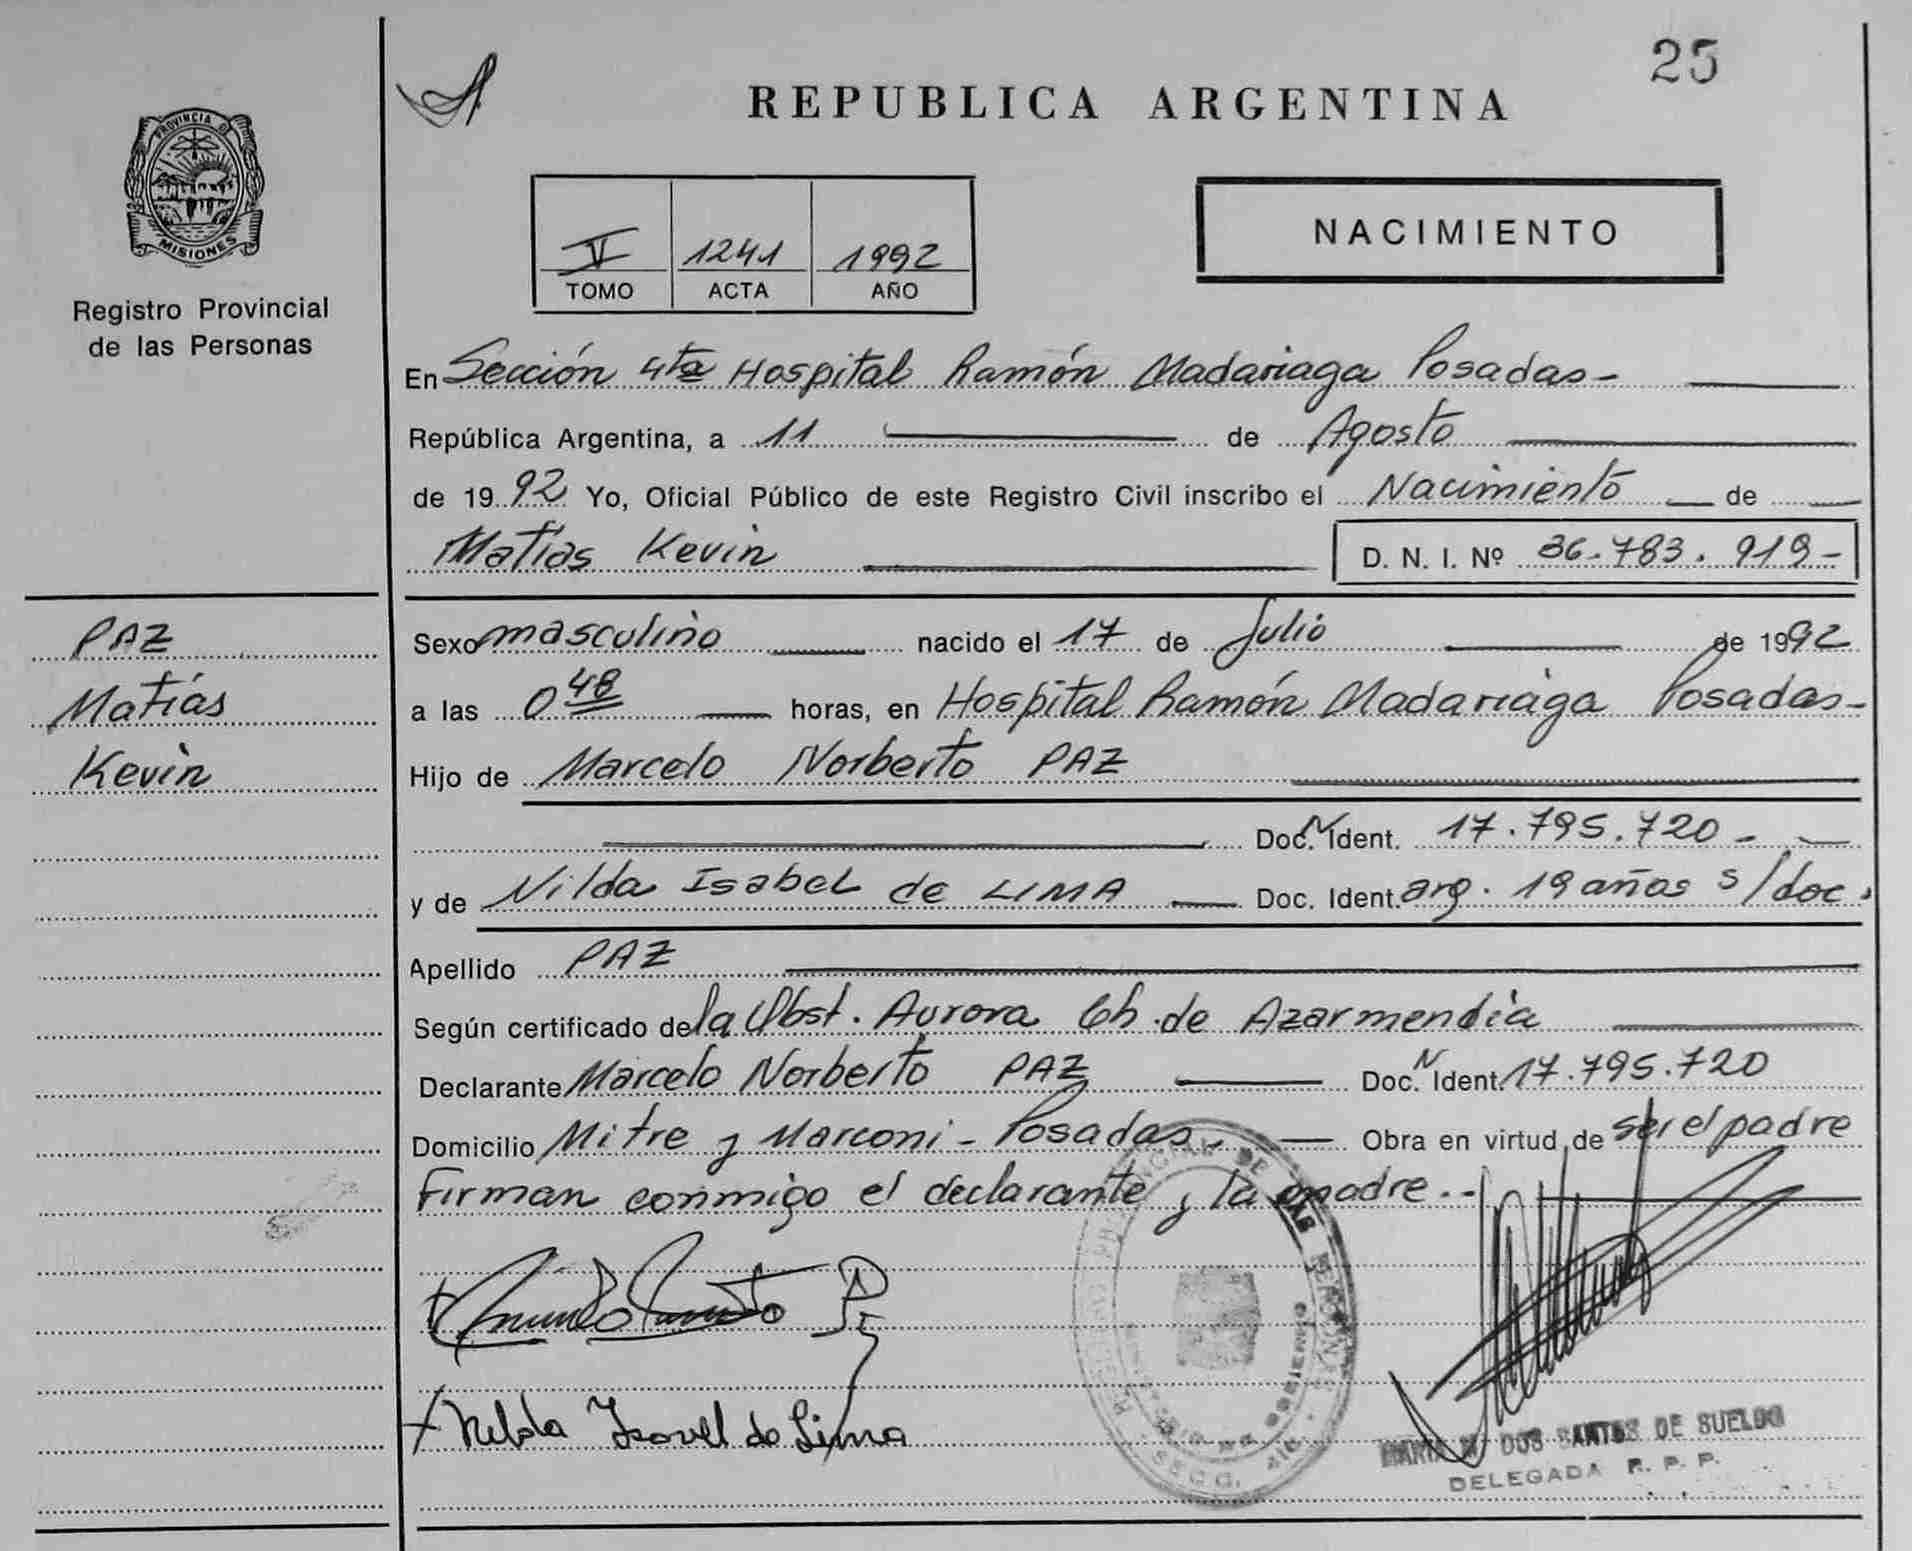 25
REPUBLICA ARGENTINA
PROVINCIA DE
MISIONES
Registro Provincial
de las Personas
V 1241 1992
TOMO ACTA AÑO
NACIMIENTO
En Sección 4ta Hospital Ramón Madariaga Posadas-
República Argentina, a 11 de Agosto
de 1992 Yo, Oficial Público de este Registro Civil inscribo el Nacimiento de
Matías Kevin D. N. I. Nº 36.783.919-
PAZ
Matías
Kevin
Sexo masculino nacido el 17 de Julio de 1992
a las 0 48 horas, en Hospital Ramón Madariaga Posadas-
Hijo de Marcelo Norberto PAZ
Doc. N Ident. 17.795.720-
y de Nilda Isabel de LIMA Doc. Ident. arg. 19 años s/doc.
Apellido PAZ
Según certificado de la Obst. Aurora Ch. de Azarmendia
Declarante Marcelo Norberto PAZ Doc. N Ident. 17.795.720
Domicilio Mitre y Marconi - Posadas- Obra en virtud de ser el padre
Firman conmigo el declarante y la madre.-
REGISTRO PROVINCIAL DE LAS PERSONAS
SECC. 4ta.
Nelda Isavel de Lima
MARIA DOS SANTOS DE SUELDO
DELEGADA R. P. P.